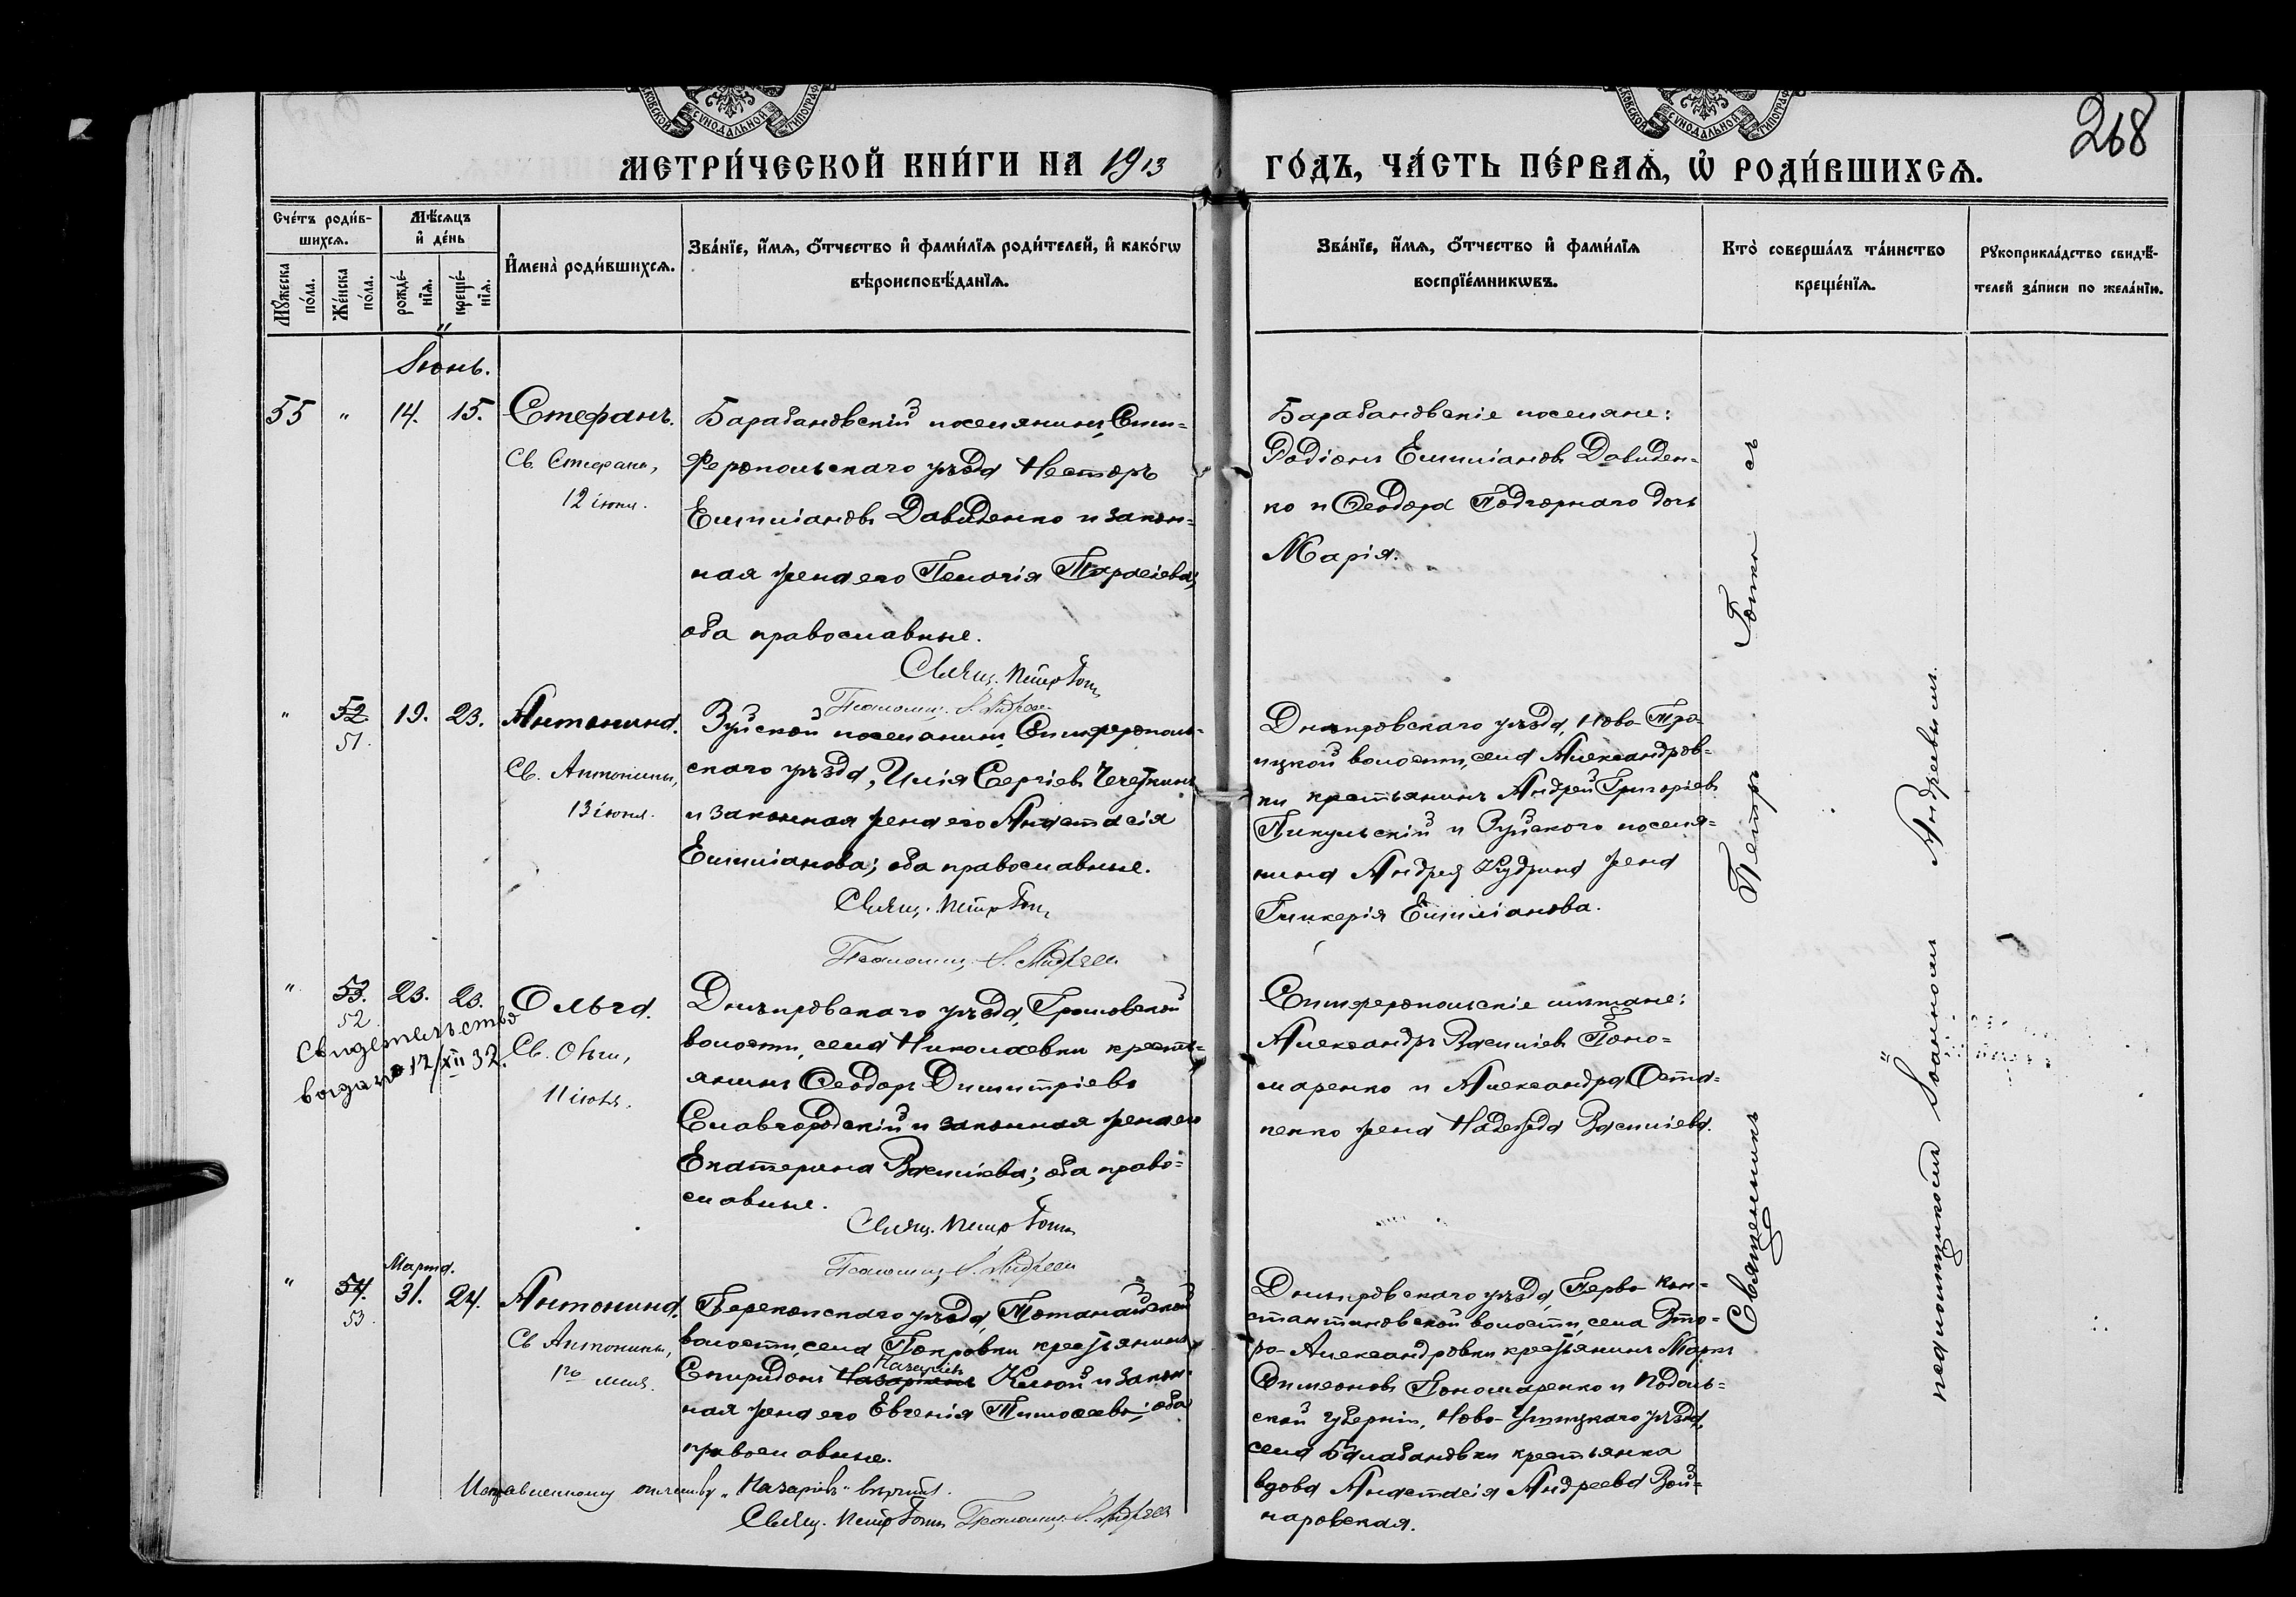 268
МЕТРИ́ЧЕСКОЙ КНИ́ГИ НА 1913 ГО́ДЪ, ЧА́СТЬ ПЕ́РВАѦ, Ѡ҆ РОДИ́ВШИХСѦ.
Сче́тъ роди́в-
шихсѧ.
Мꙋ́жеска по́ла.
Же́нска по́ла.
Мѣ́сѧцъ и҆ де́нь
рожде́-
нїѧ.
креще́-
нїѧ.
И҆мена̀ роди́вшихсѧ.
Зва́нїе, и҆́мѧ, ѻ҆́тчество и҆ фами́лїѧ роди́телей, и҆ како́гѡ
вѣроисповѣ́данїѧ.
Зва́нїе, и҆́мѧ, ѻ҆́тчество и҆ фами́лїѧ
воспрїе́мникѡвъ.
Кто̀ соверша́лъ та́инство
креще́нїѧ.
Рꙋкоприкла́дство свидѣ́-
телей за́писи по жела́нїю.
Іюнь.
55 " 14. 15. Стефанъ.
Св. Стефана,
12 іюня.
Барабановскій поселянинъ, Сим-
феропольскаго уѣзда Несторъ
Емиліановъ Давиденко и закон-
ная жена его Пелагія Тарасіева;
оба православные.
Свящ. Петръ Готи
Псаломщ. І. Андреев
Барабановскіе поселяне:
Родіонъ Емиліановъ Давиден-
ко и Ѳеодора Подгорнаго дочь
Марія.
" 52. 51. 19. 23. Антонина.
Св. Антонины,
13 іюня.
Зуйской поселянинъ, Симферополь-
скаго уѣзда, Илія Сергіевъ Чечеткинъ
и законная жена его Анастасія
Емиліанова; оба православные.
Свящ. Петръ Готи
Псаломщ. І. Андреев
Днѣпровскаго уѣзда, Ново-Тро-
ицкой волости, села Александров-
ки крестьянинъ Андрей Григоріевъ
Пикульскій и Зуйскаго поселя-
нина Андрея Кудрина жена
Гликерія Емиліанова.
" 53. 52. 23. 23. Ольга.
Св. Ольги,
11 іюля.
Свидетельство
выдано 12/XII 32.
Днѣпровскаго уѣзда, Громовской
волости, села Николаевки кресть-
янинъ Ѳеодоръ Димитріевъ
Славгородскій и законная жена его
Екатерина Василіева; оба право-
славные.
Свящ. Петръ Готи
Псаломщ. І. Андреев
Симферопольскіе мѣщане:
Александръ Василіевъ Поно-
маренко и Александра Оста-
пенко жена Надежда Василіева.
Марта.
" 54. 53. 31. 24. Антонина.
Св. Антонины,
1го мая.
Перекопскаго уѣзда, Тотанайской
волости, села Покровки крестьянинъ
Назаріевъ
Спиридонъ Клюй и закон-
ная жена его Евгенія Тимоѳеева; оба
православные.
Исправленному отчеству "Назаріевъ" вѣрить.
Свящ. Петръ Готи Псаломщ. І. Андреев
Днѣпровскаго уѣзда, Перво-Кон-
стантиновской волости, села Вто-
ро-Александровки крестьянинъ Маркъ
Симеоновъ Пономаренко и Подоль-
ской губерніи, Ново-Ушицкаго уѣзда,
села Балабановки крестьянка
вдова Анастасія Андреева Вой-
наровская.
Священникъ Петръ Готи съ
псаломщикомъ Іоанномъ Андреевымъ.